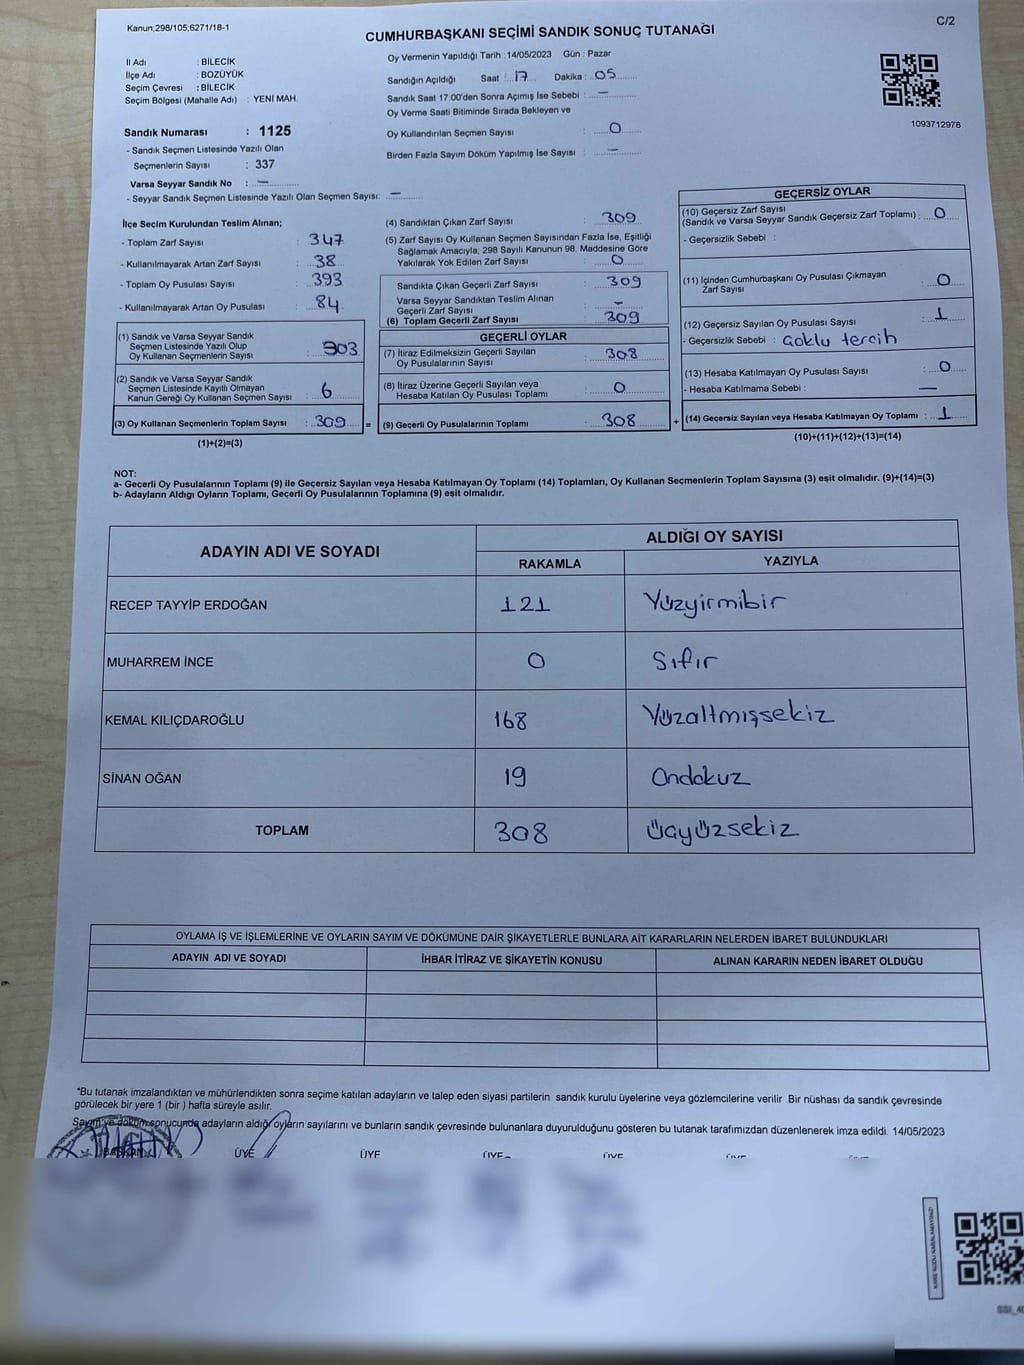 Kanun;298/105;6271/18-1
C/2
CUMHURBAŞKANI SEÇİMİ SANDIK SONUÇ TUTANAĞI
İl Adı : BİLECİK
İlçe Adı : BOZÜYÜK
Seçim Çevresi : BİLECİK
Seçim Bölgesi (Mahalle Adı) : YENİ MAH.
Sandık Numarası : 1125
- Sandık Seçmen Listesinde Yazılı Olan
Seçmenlerin Sayısı : 337
Varsa Seyyar Sandık No : —
- Seyyar Sandık Seçmen Listesinde Yazılı Olan Seçmen Sayısı: —
Oy Vermenin Yapıldığı Tarih : 14/05/2023 Gün : Pazar
Sandığın Açıldığı Saat : 17 Dakika : 05
Sandık Saat 17.00'den Sonra Açımış İse Sebebi : —
Oy Verme Saati Bitiminde Sırada Bekleyen ve
Oy Kullandırılan Seçmen Sayısı : 0
Birden Fazla Sayım Döküm Yapılmış İse Sayısı : —
1093712978
İlçe Seçim Kurulundan Teslim Alınan;
- Toplam Zarf Sayısı : 347
- Kullanılmayarak Artan Zarf Sayısı : 38
- Toplam Oy Pusulası Sayısı : 393
- Kullanılmayarak Artan Oy Pusulası : 84
(1) Sandık ve Varsa Seyyar Sandık
Seçmen Listesinde Yazılı Olup
Oy Kullanan Seçmenlerin Sayısı : 303
(2) Sandık ve Varsa Seyyar Sandık
Seçmen Listesinde Kayıtlı Olmayan
Kanun Gereği Oy Kullanan Seçmen Sayısı : 6
(3) Oy Kullanan Seçmenlerin Toplam Sayısı : 309 =
(1)+(2)=(3)
(4) Sandıktan Çıkan Zarf Sayısı : 309
(5) Zarf Sayısı Oy Kullanan Seçmen Sayısından Fazla İse, Eşitliği
Sağlamak Amacıyla; 298 Sayılı Kanunun 98. Maddesine Göre
Yakılarak Yok Edilen Zarf Sayısı : 0
Sandıkta Çıkan Geçerli Zarf Sayısı : 309
Varsa Seyyar Sandıktan Teslim Alınan
Geçerli Zarf Sayısı : —
(6) Toplam Geçerli Zarf Sayısı : 309
GEÇERLİ OYLAR
(7) İtiraz Edilmeksizin Geçerli Sayılan
Oy Pusulalarının Sayısı : 308
(8) İtiraz Üzerine Geçerli Sayılan veya
Hesaba Katılan Oy Pusulası Toplamı : 0
(9) Geçerli Oy Pusulalarının Toplamı : 308 +
GEÇERSİZ OYLAR
(10) Geçersiz Zarf Sayısı
(Sandık ve Varsa Seyyar Sandık Geçersiz Zarf Toplamı) : 0
- Geçersizlik Sebebi :
(11) İçinden Cumhurbaşkanı Oy Pusulası Çıkmayan
Zarf Sayısı : 0
(12) Geçersiz Sayılan Oy Pusulası Sayısı : 1
- Geçersizlik Sebebi : Çoklu tercih
(13) Hesaba Katılmayan Oy Pusulası Sayısı : 0
- Hesaba Katılmama Sebebi : —
(14) Geçersiz Sayılan veya Hesaba Katılmayan Oy Toplamı : 1
(10)+(11)+(12)+(13)=(14)
NOT:
a- Geçerli Oy Pusulalarının Toplamı (9) ile Geçersiz Sayılan veya Hesaba Katılmayan Oy Toplamı (14) Toplamları, Oy Kullanan Seçmenlerin Toplam Sayısına (3) eşit olmalıdır. (9)+(14)=(3)
b- Adayların Aldığı Oyların Toplamı, Geçerli Oy Pusulalarının Toplamına (9) eşit olmalıdır.
ADAYIN ADI VE SOYADI
ALDIĞI OY SAYISI
RAKAMLA YAZIYLA
RECEP TAYYİP ERDOĞAN 121 Yüzyirmibir
MUHARREM İNCE 0 Sıfır
KEMAL KILIÇDAROĞLU 168 Yüzaltmışsekiz
SİNAN OĞAN 19 Ondokuz
TOPLAM 308 Üçyüzsekiz
OYLAMA İŞ VE İŞLEMLERİNE VE OYLARIN SAYIM VE DÖKÜMÜNE DAİR ŞİKAYETLERLE BUNLARA AİT KARARLARIN NELERDEN İBARET BULUNDUKLARI
ADAYIN ADI VE SOYADI İHBAR İTİRAZ VE ŞİKAYETİN KONUSU ALINAN KARARIN NEDEN İBARET OLDUĞU
*Bu tutanak imzalandıktan ve mühürlendikten sonra seçime katılan adayların ve talep eden siyasi partilerin sandık kurulu üyelerine veya gözlemcilerine verilir .Bir nüshası da sandık çevresinde
görülecek bir yere 1 (bir ) hafta süreyle asılır.
Sayım ve döküm sonucunda adayların aldığı oyların sayılarını ve bunların sandık çevresinde bulunanlara duyurulduğunu gösteren bu tutanak tarafımızdan düzenlenerek imza edildi. 14/05/2023
BAŞKAN ÜYE ÜYE ÜYE ÜYE ÜYE